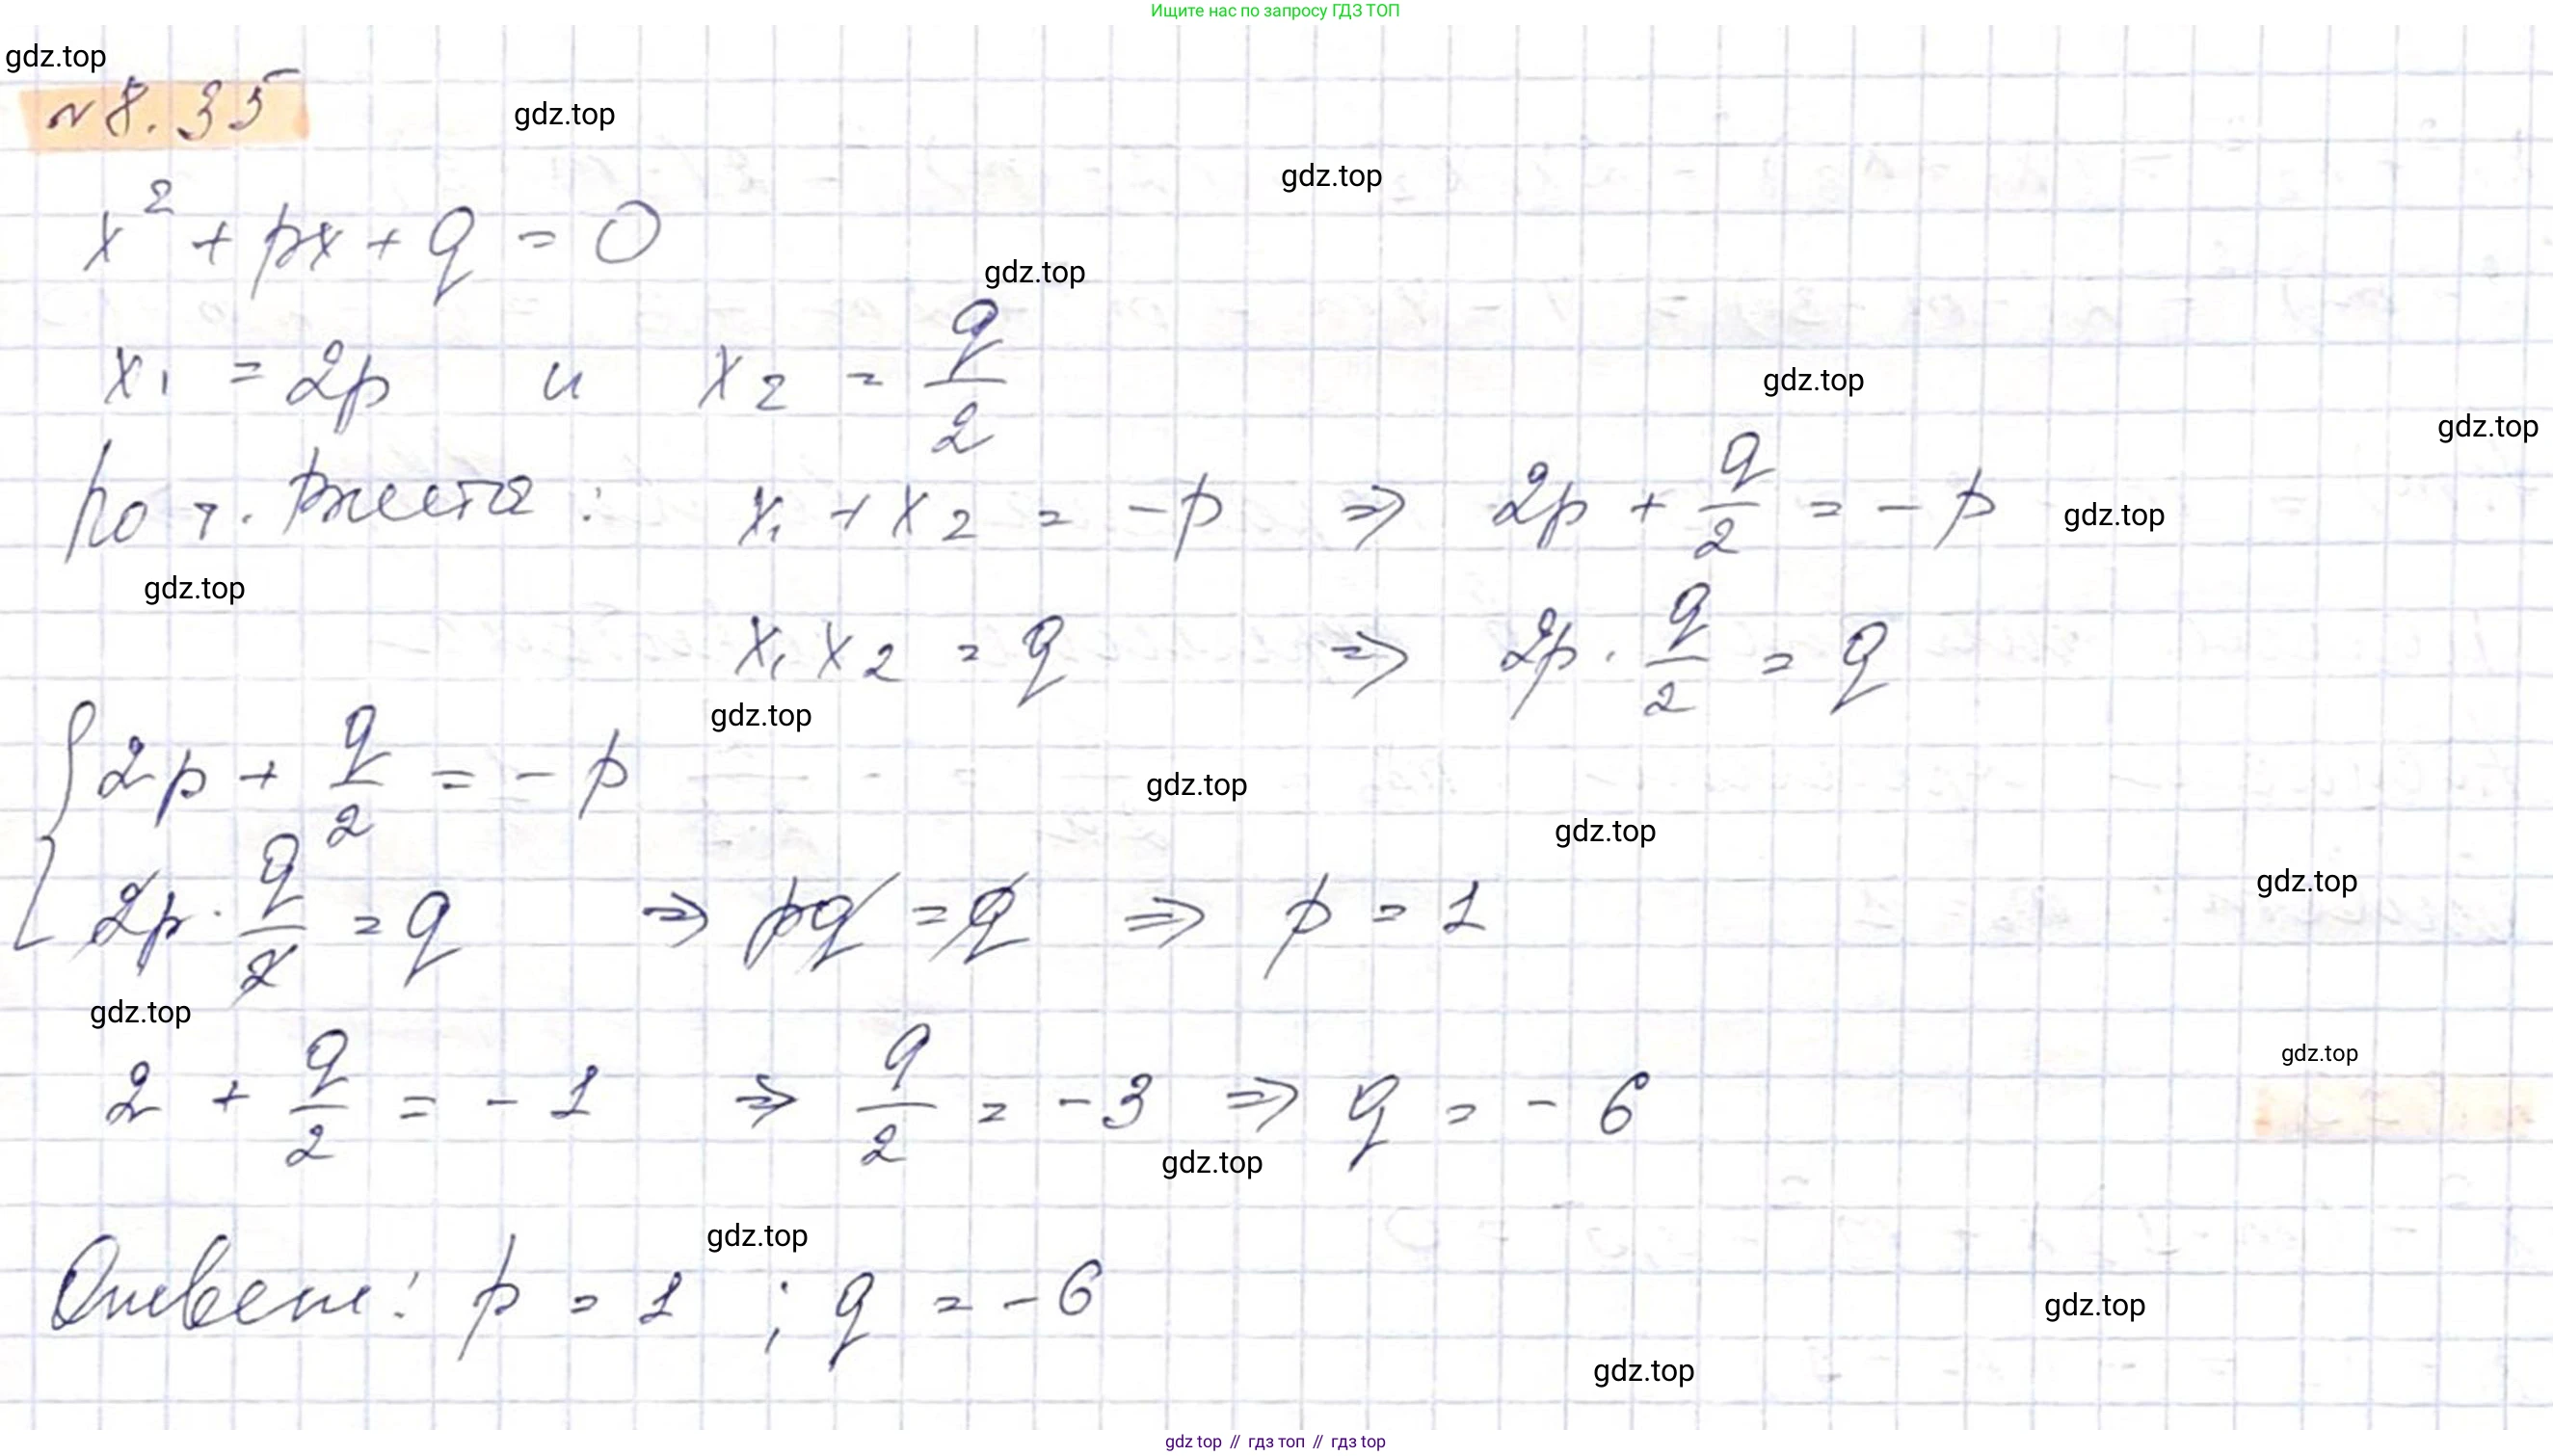 Ищите нас по запросу ГДЗ ТОП
gdz.top
№ 8.35
gdz.top
gdz.top
x² + px + q = 0
gdz.top
x₁ = 2p и x₂ = q/2
gdz.top
gdz.top
По т. Виета: x₁ + x₂ = -p ⇒ 2p + q/2 = -p
gdz.top
gdz.top
x₁ x₂ = q ⇒ 2p · q/2 = q
gdz.top
{ 2p + q/2 = -p
gdz.top
gdz.top
2p · q/2 = q ⇒ pq = q ⇒ p = 1
gdz.top
gdz.top
2 + q/2 = -1 ⇒ q/2 = -3 ⇒ q = -6
gdz.top
gdz.top
gdz.top
Ответ: p = 1 ; q = -6
gdz.top
gdz.top
gdz top // гдз топ // гдз top